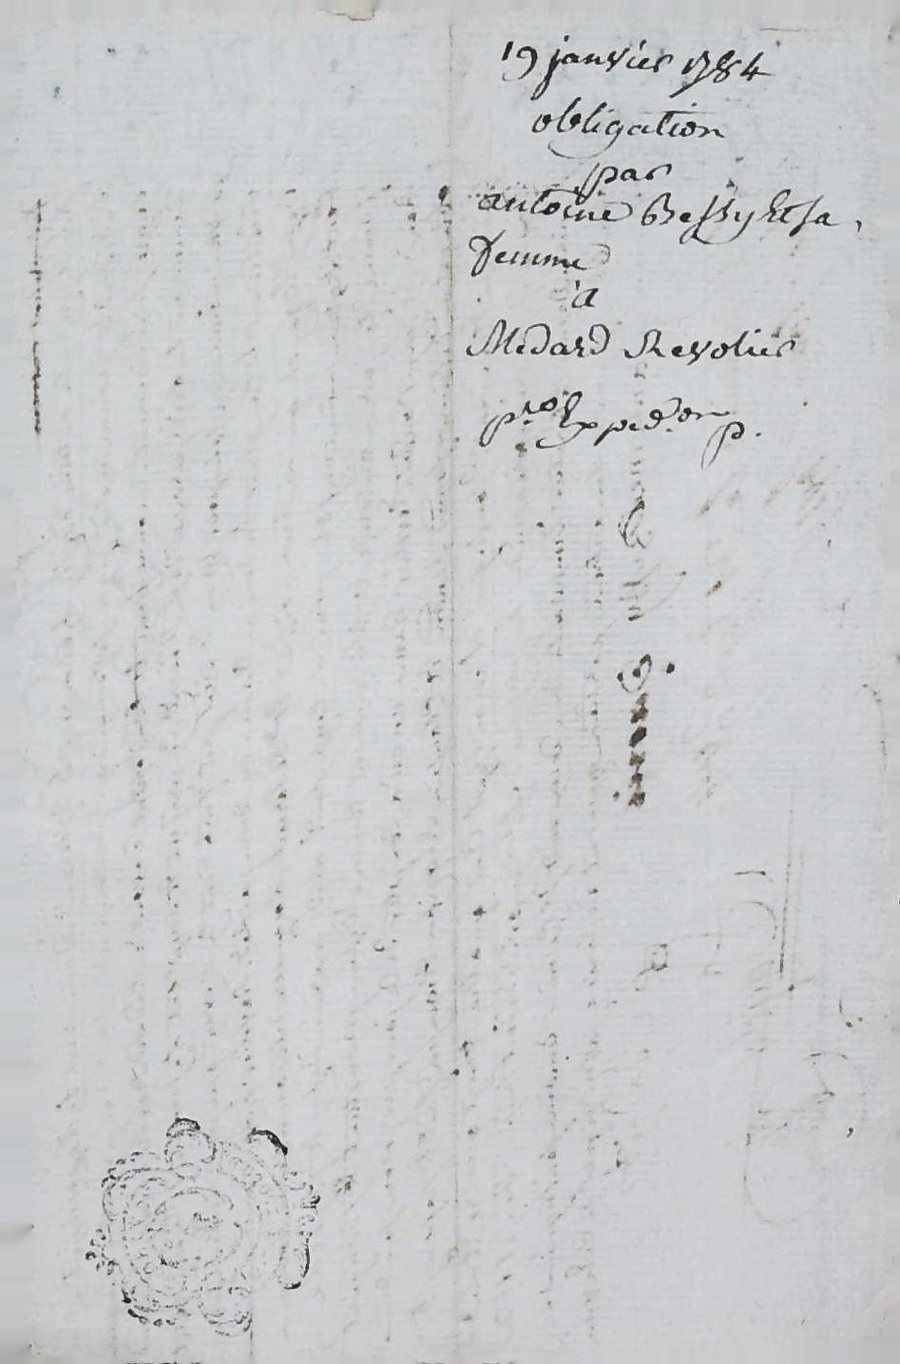 19 janvier 1784
obligation
par
antoine Bessy Et sa
femme
à
Medard Revolier
pro Expedon p.